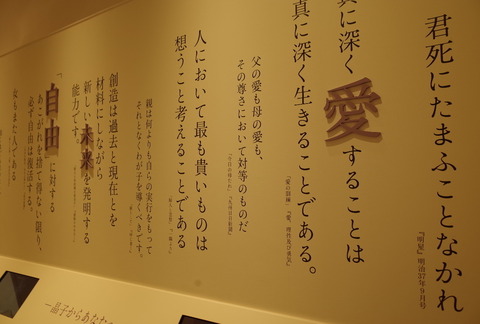 君死にたまふことなかれ
『明星』明治37年9月号
真に深く愛することは
真に深く生きることである。
「愛の訓練」『愛、理性及び勇気』
父の愛も母の愛も、
その尊さにおいて対等のものだ
人において最も貴いものは
想うこと考えることである
親は何よりも自らの実行をもって
それとなくわが子を導くべきです。
創造は過去と現在とを
材料にしながら
新しい未来を発明する
能力です。
「自由」に対する
あこがれを捨て得ない限り、
必ず自由は復活する。
女もまた人である
―晶子からあなた